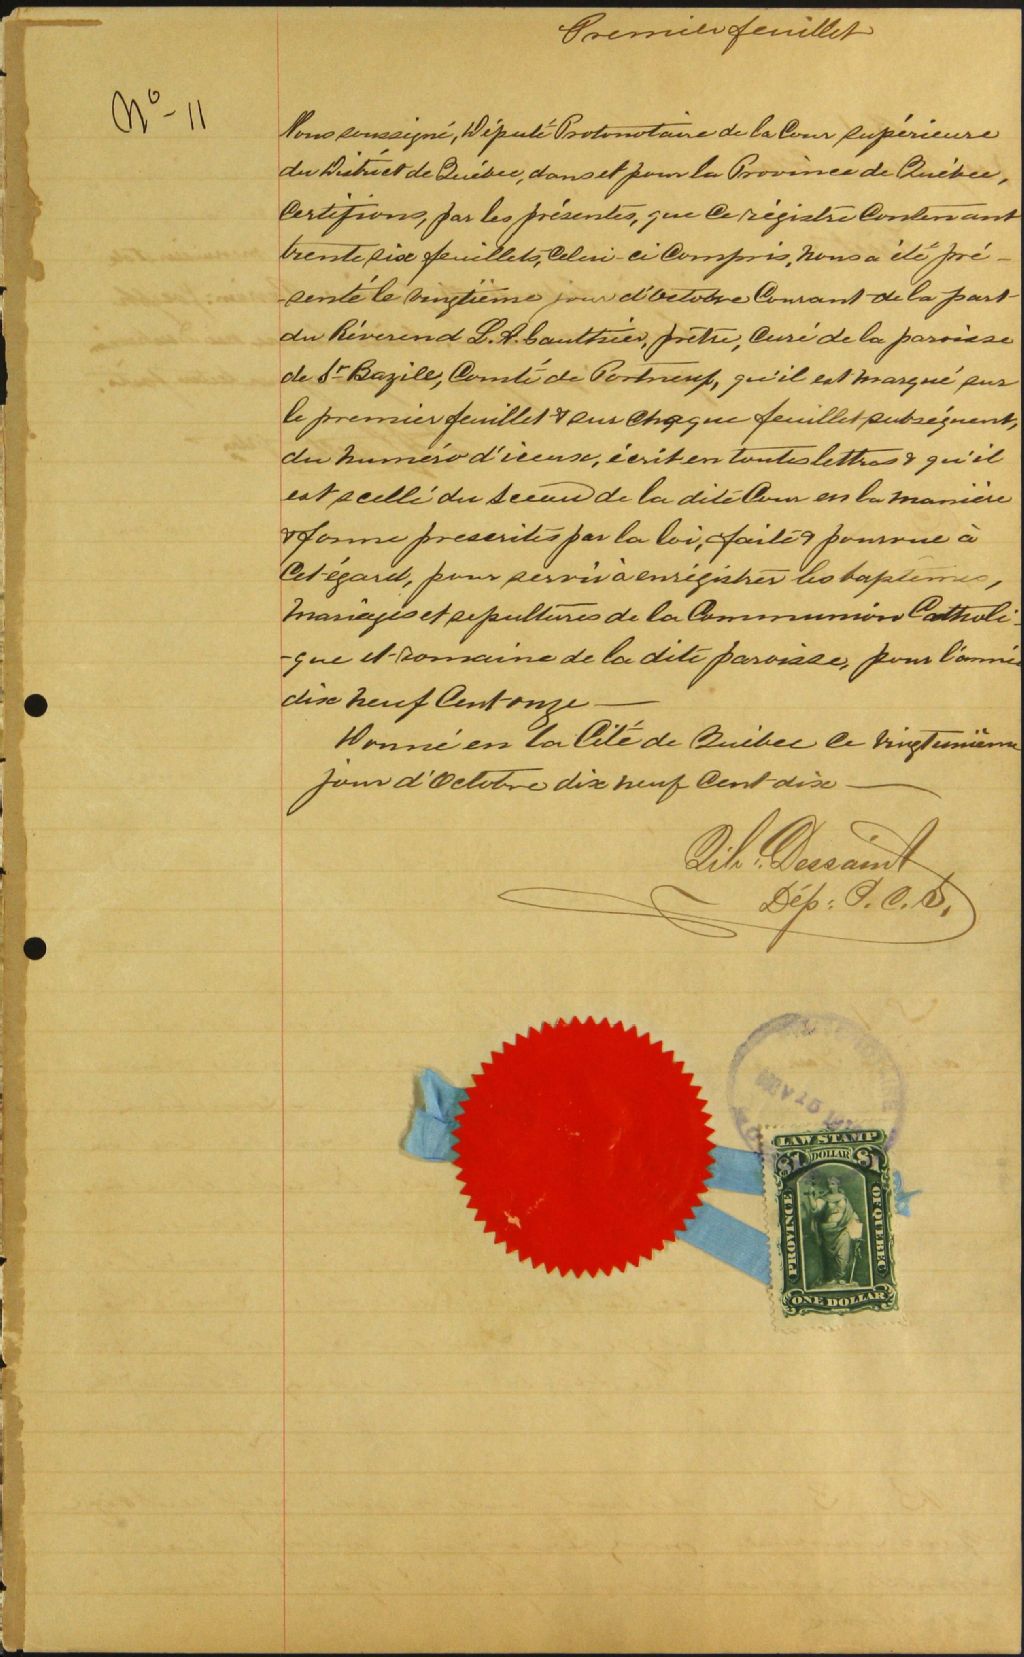 Premier feuillet
No - 11
Nous soussigné, Député Protonotaire de la Cour supérieure
du District de Québec, dans et pour la Province de Québec,
Certifions, par les présentes, que ce régistre Contenant
trente six feuillets, Celui-ci Compris, nous a été pré-
-senté le vingtième jour d'Octobre Courant de la part
du Réverend L. A. Gauthier, prêtre, Curé de la paroisse
de St Bazile, Comté de Portneuf, qu'il est marqué sur
le premier feuillet & sur chaque feuillet subséquent,
du numéro d'iceux, écrit en toutes lettres & qu'il
est scellé du sceau de la dite Cour en la manière
& forme prescrites par la loi, faite & pourvue à
Cet égard, pour servir à enrégistrer les baptêmes,
Mariages et sepultures de la Communion Catholi-
-que et romaine de la dite paroisse, pour l'année
dix neuf Cent onze —
Donné en la Cité de Québec ce vingtunième
jour d'Octobre dix neuf Cent dix —
Dessaint
Dép: P. C. S.
NOV 25
LAW STAMP
$1 DOLLAR $1
PROVINCE
OF QUEBEC
ONE DOLLAR